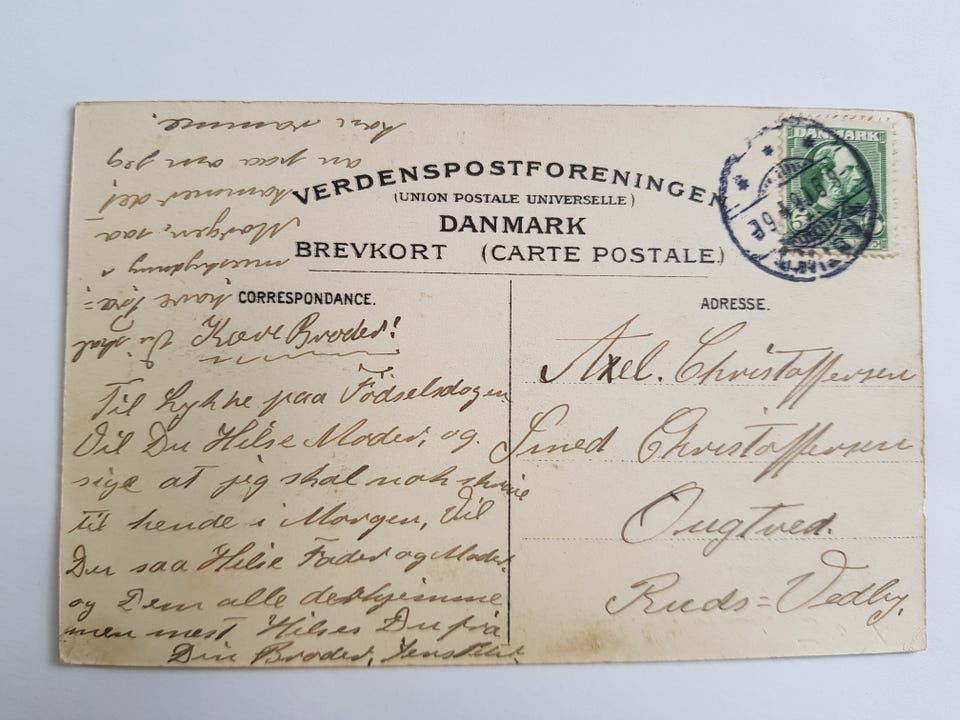 VERDENSPOSTFORENINGEN
(UNION POSTALE UNIVERSELLE)
DANMARK
BREVKORT (CARTE POSTALE.)
DANMARK
CORRESPONDANCE.
ADRESSE.
Kære Broder!
Til Lykke paa Födselsdagen
Vil Du Hilse Moder, og
sige at jeg skal nok skrive
til hende i Morgen, Vil
Du saa Hilse Fader og Moder
og Dem alle derhjemme
men mest Hilses Du fra
Din Broder, Jens
Du skal
have
Morgen, saa
kommer det
an paa om jeg
kan
Axel. Christoffersen
Smed Christoffersen
Ougtved.
Ruds=Vedby,